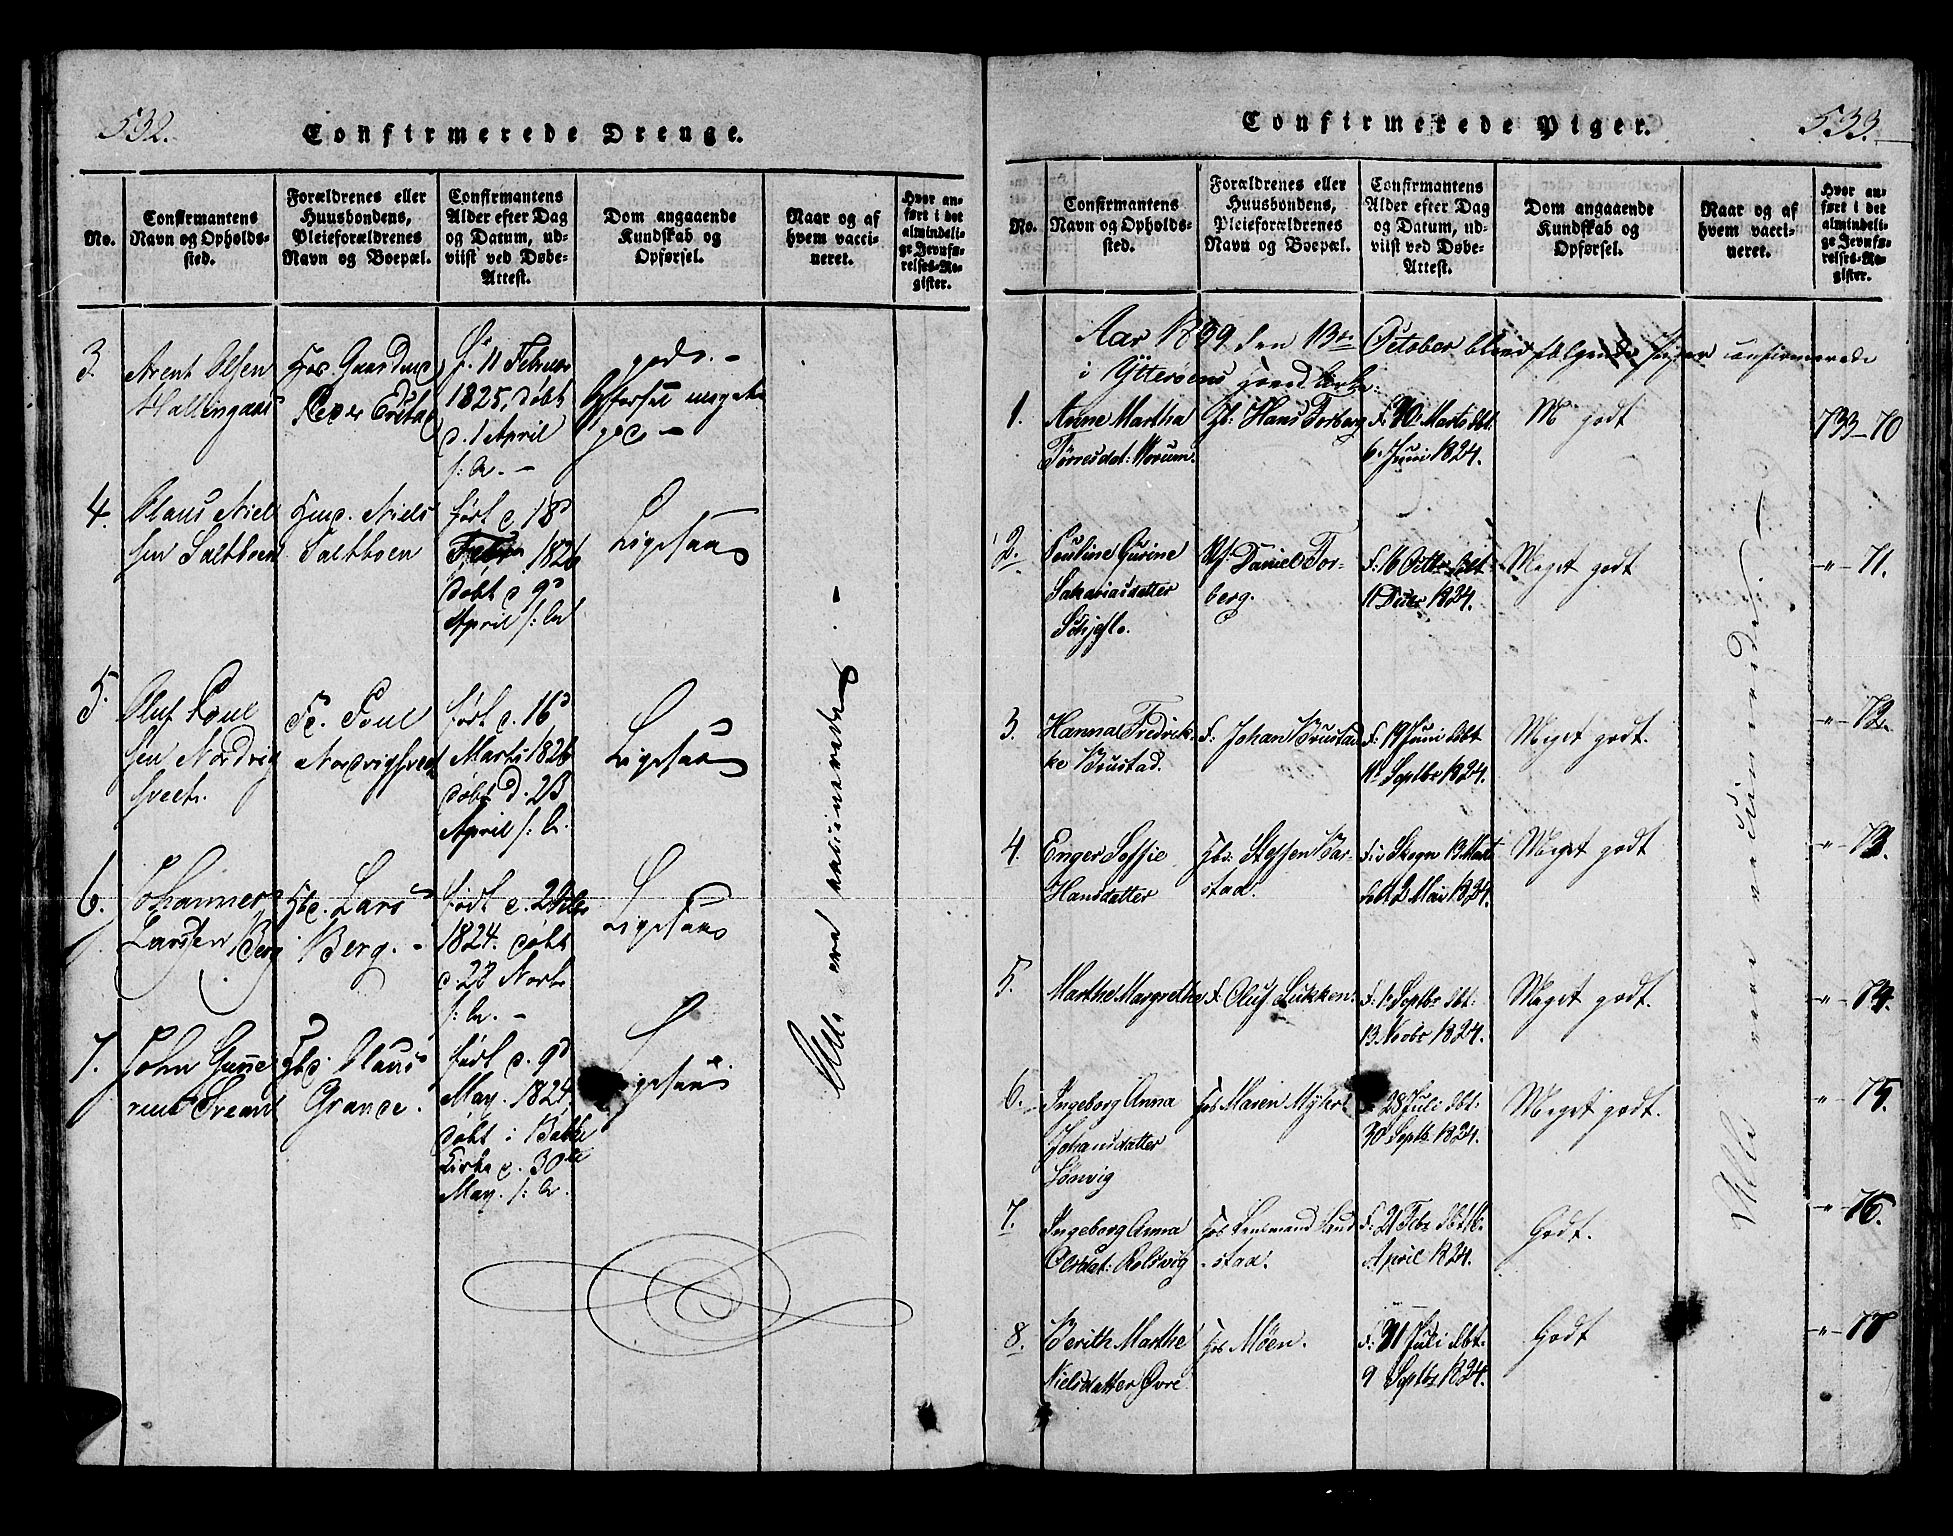 532.
Confirmerede Drenge.
No.
Confirmantens
Navn og Opholds-
sted.
Forældrenes eller
Huusbondens,
Pleieforældrenes
Navn og Boepæl.
Confirmantens
Alder efter Dag
og Datum, ud-
viist ved Døbe-
Attest.
Dom angaaende
Kundskab og
Opførsel.
Naar og af
hvem vacci-
neret.
Hvor an-
ført i det
almindeli-
ge Jevnfø-
relses-Re-
gister.
3.
Arent Olsen
Hallingaas
Hos
f. 11 Februar
1825, døbt
d. 1 April
gods. -
Opførsel meget
god -
4.
Olaus Niel
sen Saltboen
Niels
Saltboen
født d 18d
Febr 1826
døbt d 9d
April
Ligesaa
5.
Oluf Poul
sen Nordvig
Poul
født d. 16d
Marts 1826
døbt d. 23
April
Ligesaa
6.
Johannes
Larsten Berg
Lars
Berg. -
født d. 2
1824. døbt
d 22 Novbr
Ligesaa
7.
John
Olaus
Grande.
født d. 9d
May. 1824
døbt i Bakke
Kirke d. 30te
May.
Ligesaa
Alle ere vaccinerede
533.
Confirmerede Piger.
No.
Confirmantens
Navn og Opholds-
sted.
Forældrenes eller
Huusbondens,
Pleieforældrenes
Navn og Boepæl.
Confirmantens
Alder efter Dag
og Datum, ud-
viist ved Døbe-
Attest.
Dom angaaende
Kundskab og
Opførsel.
Naar og af
hvem vacci-
neret.
Hvor an-
ført i det
almindeli-
ge Jevnfø-
relses-Re-
gister.
Aar 1839 den 13de October blev følgende Piger confirmerede
i Ytterøens
1.
Anne Martha
Tørresdat: Norum.
Hans Forberg
f. 30 Marts dbt.
6 Juni 1824.
M godt
733-70
2.
Pauline Gurine
Sakariasdatter
Daniel For-
berg.
f: 16 Octbr dbt
11 Decbr 1824.
Meget godt
"-71.
3.
Hanna Fredrik-
ke Brustad.
F: Johan Brustad
f: 19 Juni dbt
11 Septbr 1824.
Meget godt.
"-72.
4.
Enger Soffie
Hansdatter
Steffen Bar-
stad.
f: i Skogn 13 Marts
dbt 2 Mai 1824.
Meget godt
"-73.
5.
Marthe Margrethe
F: Oluf Lükken.
f: 1 Septbr dbt:
13 Novbr 1824.
Meget godt.
"-74.
6.
Ingeborg Anna
Johansdatter
hos Maren
28 Juli dbt:
30 Septb. 1824.
Meget godt.
"-75.
7.
Ingeborg Anna
Olsdat: Rolsvig
hos Lensmand Sund
-stad.
f: 21 Febr dbt
April 1824.
Godt.
"-76.
8.
Berith Marthe
Nielsdatter Øvre
hos Möen.
f: 31 Juli dbt:
9 Septbr 1824.
Godt
"-77
Alle ere vaccinerede.